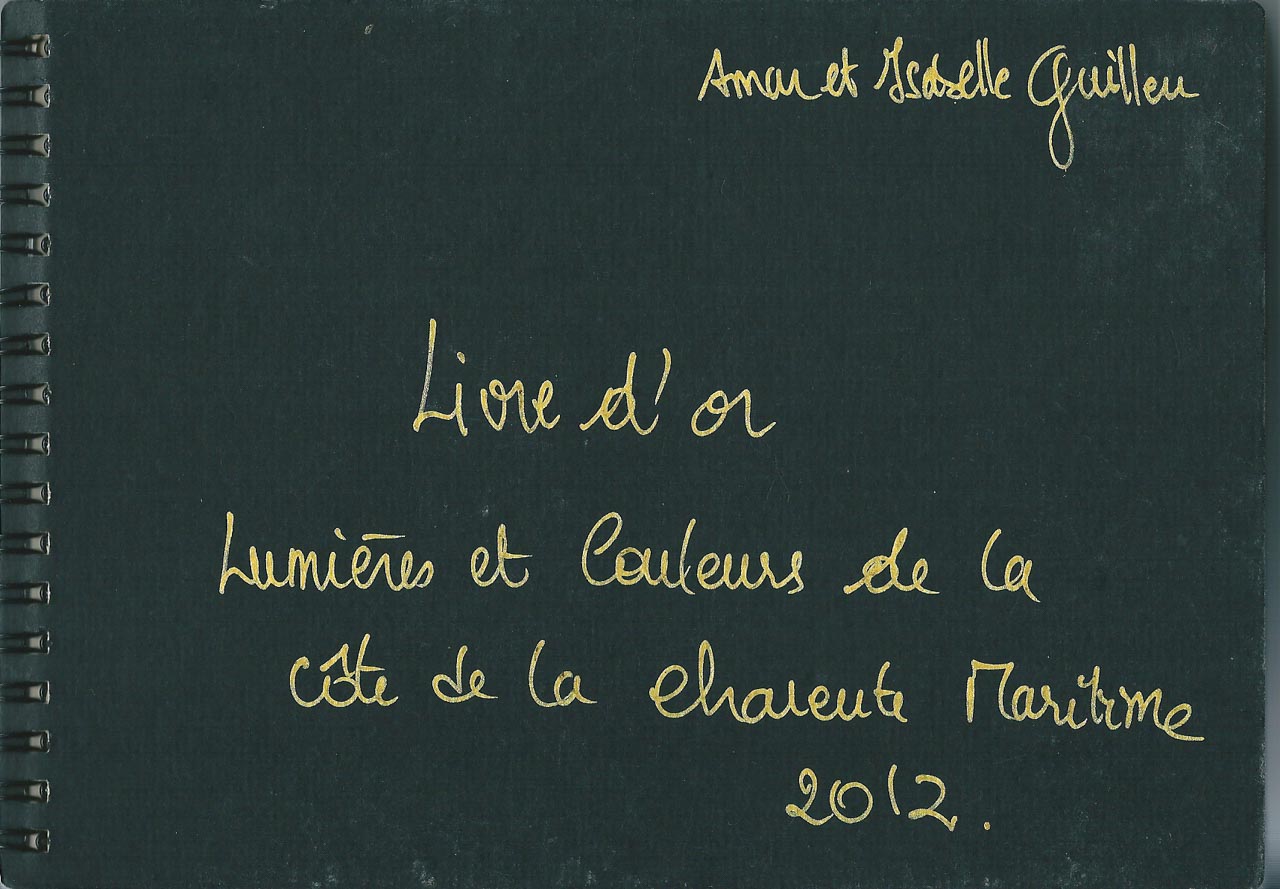 Amar et Isabelle Guillen
Livre d'or
Lumières et Couleurs de la
Côte de la Charente Maritime
2012.